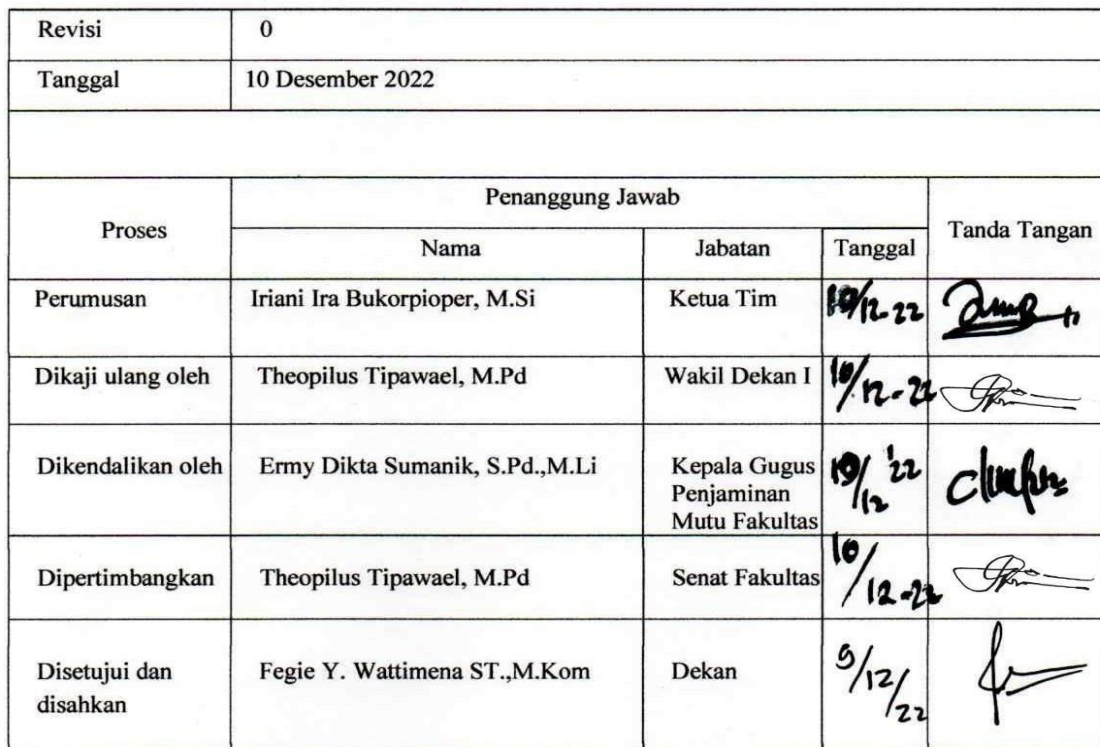 Revisi 0
Tanggal 10 Desember 2022
Proses Penanggung Jawab Tanda Tangan
Nama Jabatan Tanggal
Perumusan Iriani Ira Bukorpioper, M.Si Ketua Tim 10/12-22
Dikaji ulang oleh Theopilus Tipawael, M.Pd Wakil Dekan I 10/12-22
Dikendalikan oleh Ermy Dikta Sumanik, S.Pd.,M.Li Kepala Gugus 10/12 '22
Penjaminan
Mutu Fakultas
Dipertimbangkan Theopilus Tipawael, M.Pd Senat Fakultas 10/12-22
Disetujui dan Fegie Y. Wattimena ST.,M.Kom Dekan 9/12/22
disahkan